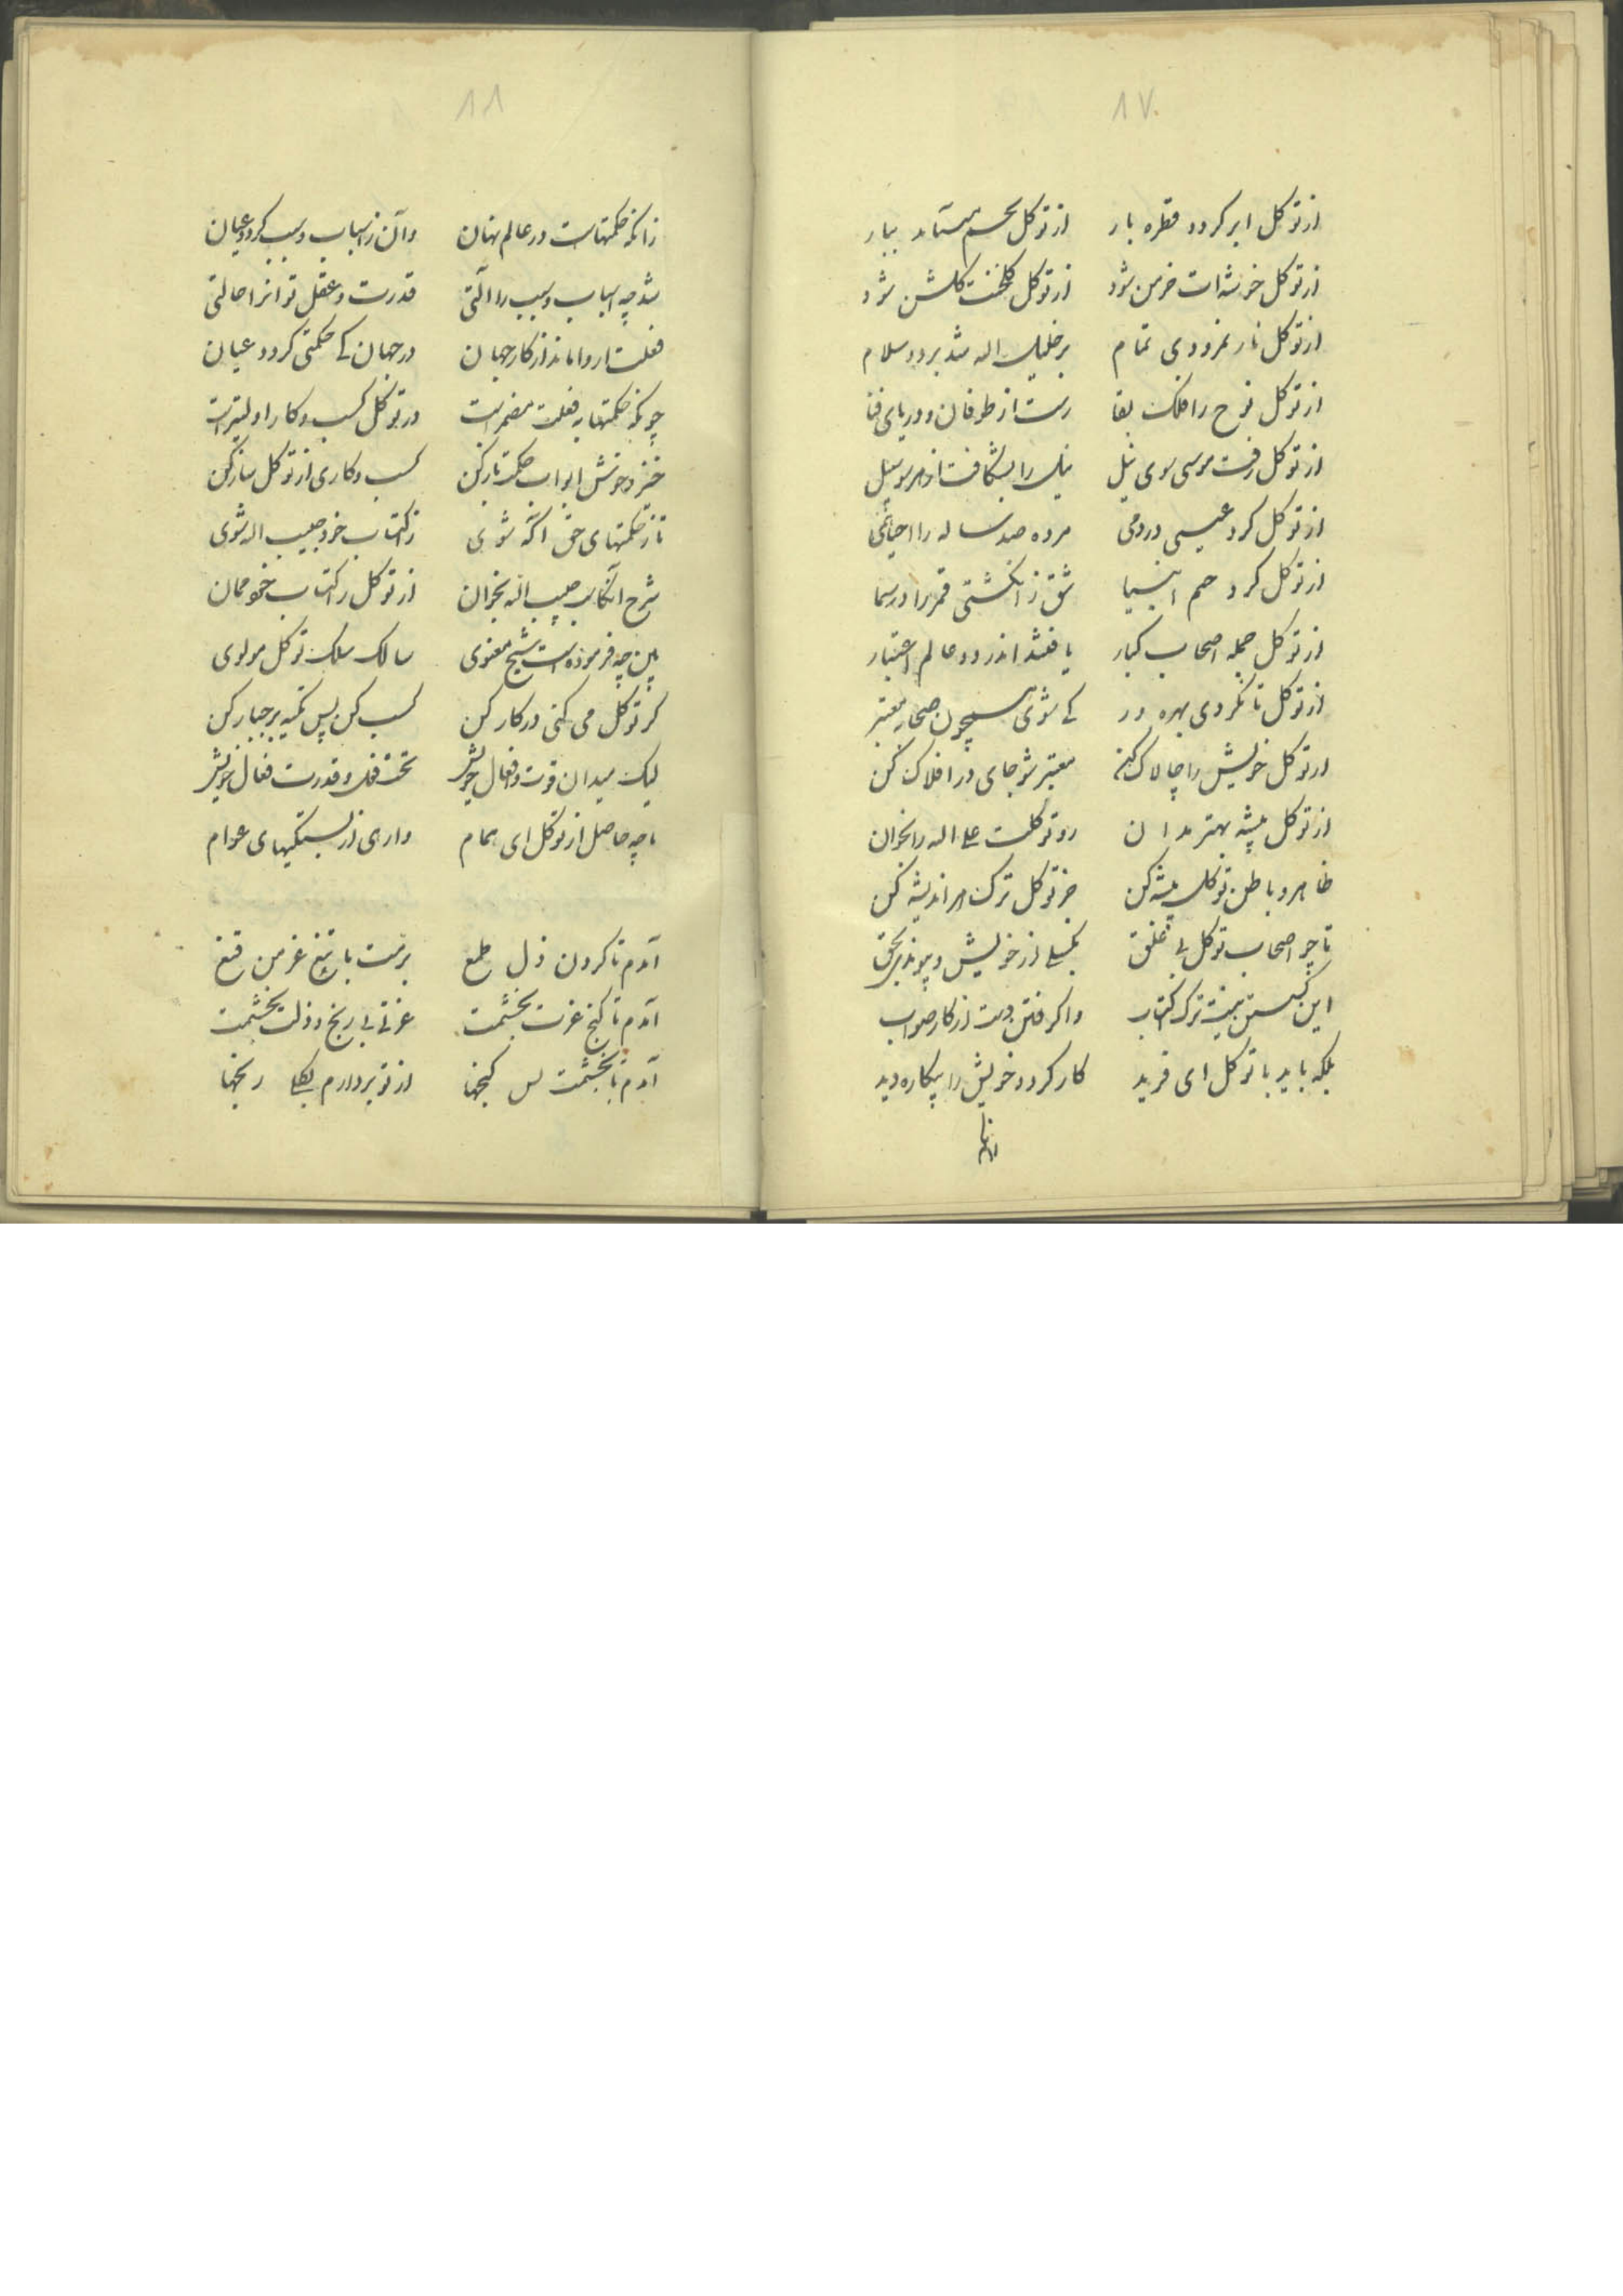 ۸۷
از توکل ابر کردد قطره بار از توکل تخم میآید ببار
از توکل خوشه‌ات خرمن شود از توکل کلخنت کلشن شود
از توکل نار نمرودی تمام بر خلیل اله شد برد و سلام
از توکل نوح را فلک بقا رست از طوفان و دریای فنا
از توکل رفت موسی سوی نیل نیل را بشکافت از هر سو سبیل
از توکل کرد عیسی در دمی مرده صد ساله را احیا
از توکل کرد ختم انبیا شق ز انکشتی قمر را در سما
از توکل جمله اصحاب کبار یافتند اندر دو عالم اعتبار
از توکل تا نکردی بهره ور کی شوی همچون صحابه معتبر
از توکل خویش را چالاک کن معتبر شو جای در افلاک کن
از توکل پیشه بهتر مدان رو توکلت علی اله را بخوان
ظاهر و باطن توکل پیشه کن جز توکل ترک هر اندیشه کن
تا چو اصحاب توکل بی غلق بکسلی از خویش و پیوندی بحق
این کسستن نیست ترک اکتساب وا کرفتن دست از کار صواب
بلکه باید با توکل ای فرید کار کرد و خویش را بیکاره دید
زانکه
۸۸
زانکه حکمتهاست در عالم نهان وآن ز اسباب و سبب کردد عیان
شد چه اسباب و سبب را آلتی قدرت و عقل توانرا حالتی
فعلت ار واماند از کار جهان در جهان کی حکمتی کردد عیان
چونکه حکمتها به فعلت مضمر است در توکل کسب و کار اولیتر است
خیز و خوش ابواب حکمت باز کن کسب و کاری از توکل ساز کن
تا ز حکمتهای حق آکه شوی ز اکتساب خود حبیب اله شوی
شرح الکاسب حبیب الله بخوان از توکل ز اکتساب خود ممان
بین چه فرموده است شیخ معنوی سالک سلک توکل مولوی
کر توکل می کنی در کار کن کسب کن پس تکیه بر جبار کن
لیک میدان قوت و افعال خویش تحت فعل و قدرت فعال خویش
تا چه حاصل از توکل ای همام وارهی از بستکیهای عوام
آمدم تا کردن ذل طمع برمت با تیغ عز من قنع
آمدم تا کنج عزت بخشمت عزتی بی رنج و ذلت بخشمت
آمدم تا بخشمت بس کنجها از تو بردارم بکلی رنجها